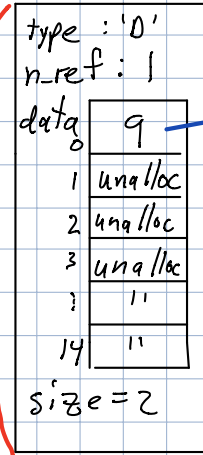 type : 'D'
n_ref : 1
data
0 9
1 unalloc
2 unalloc
3 unalloc
: "
14 "
size = 2